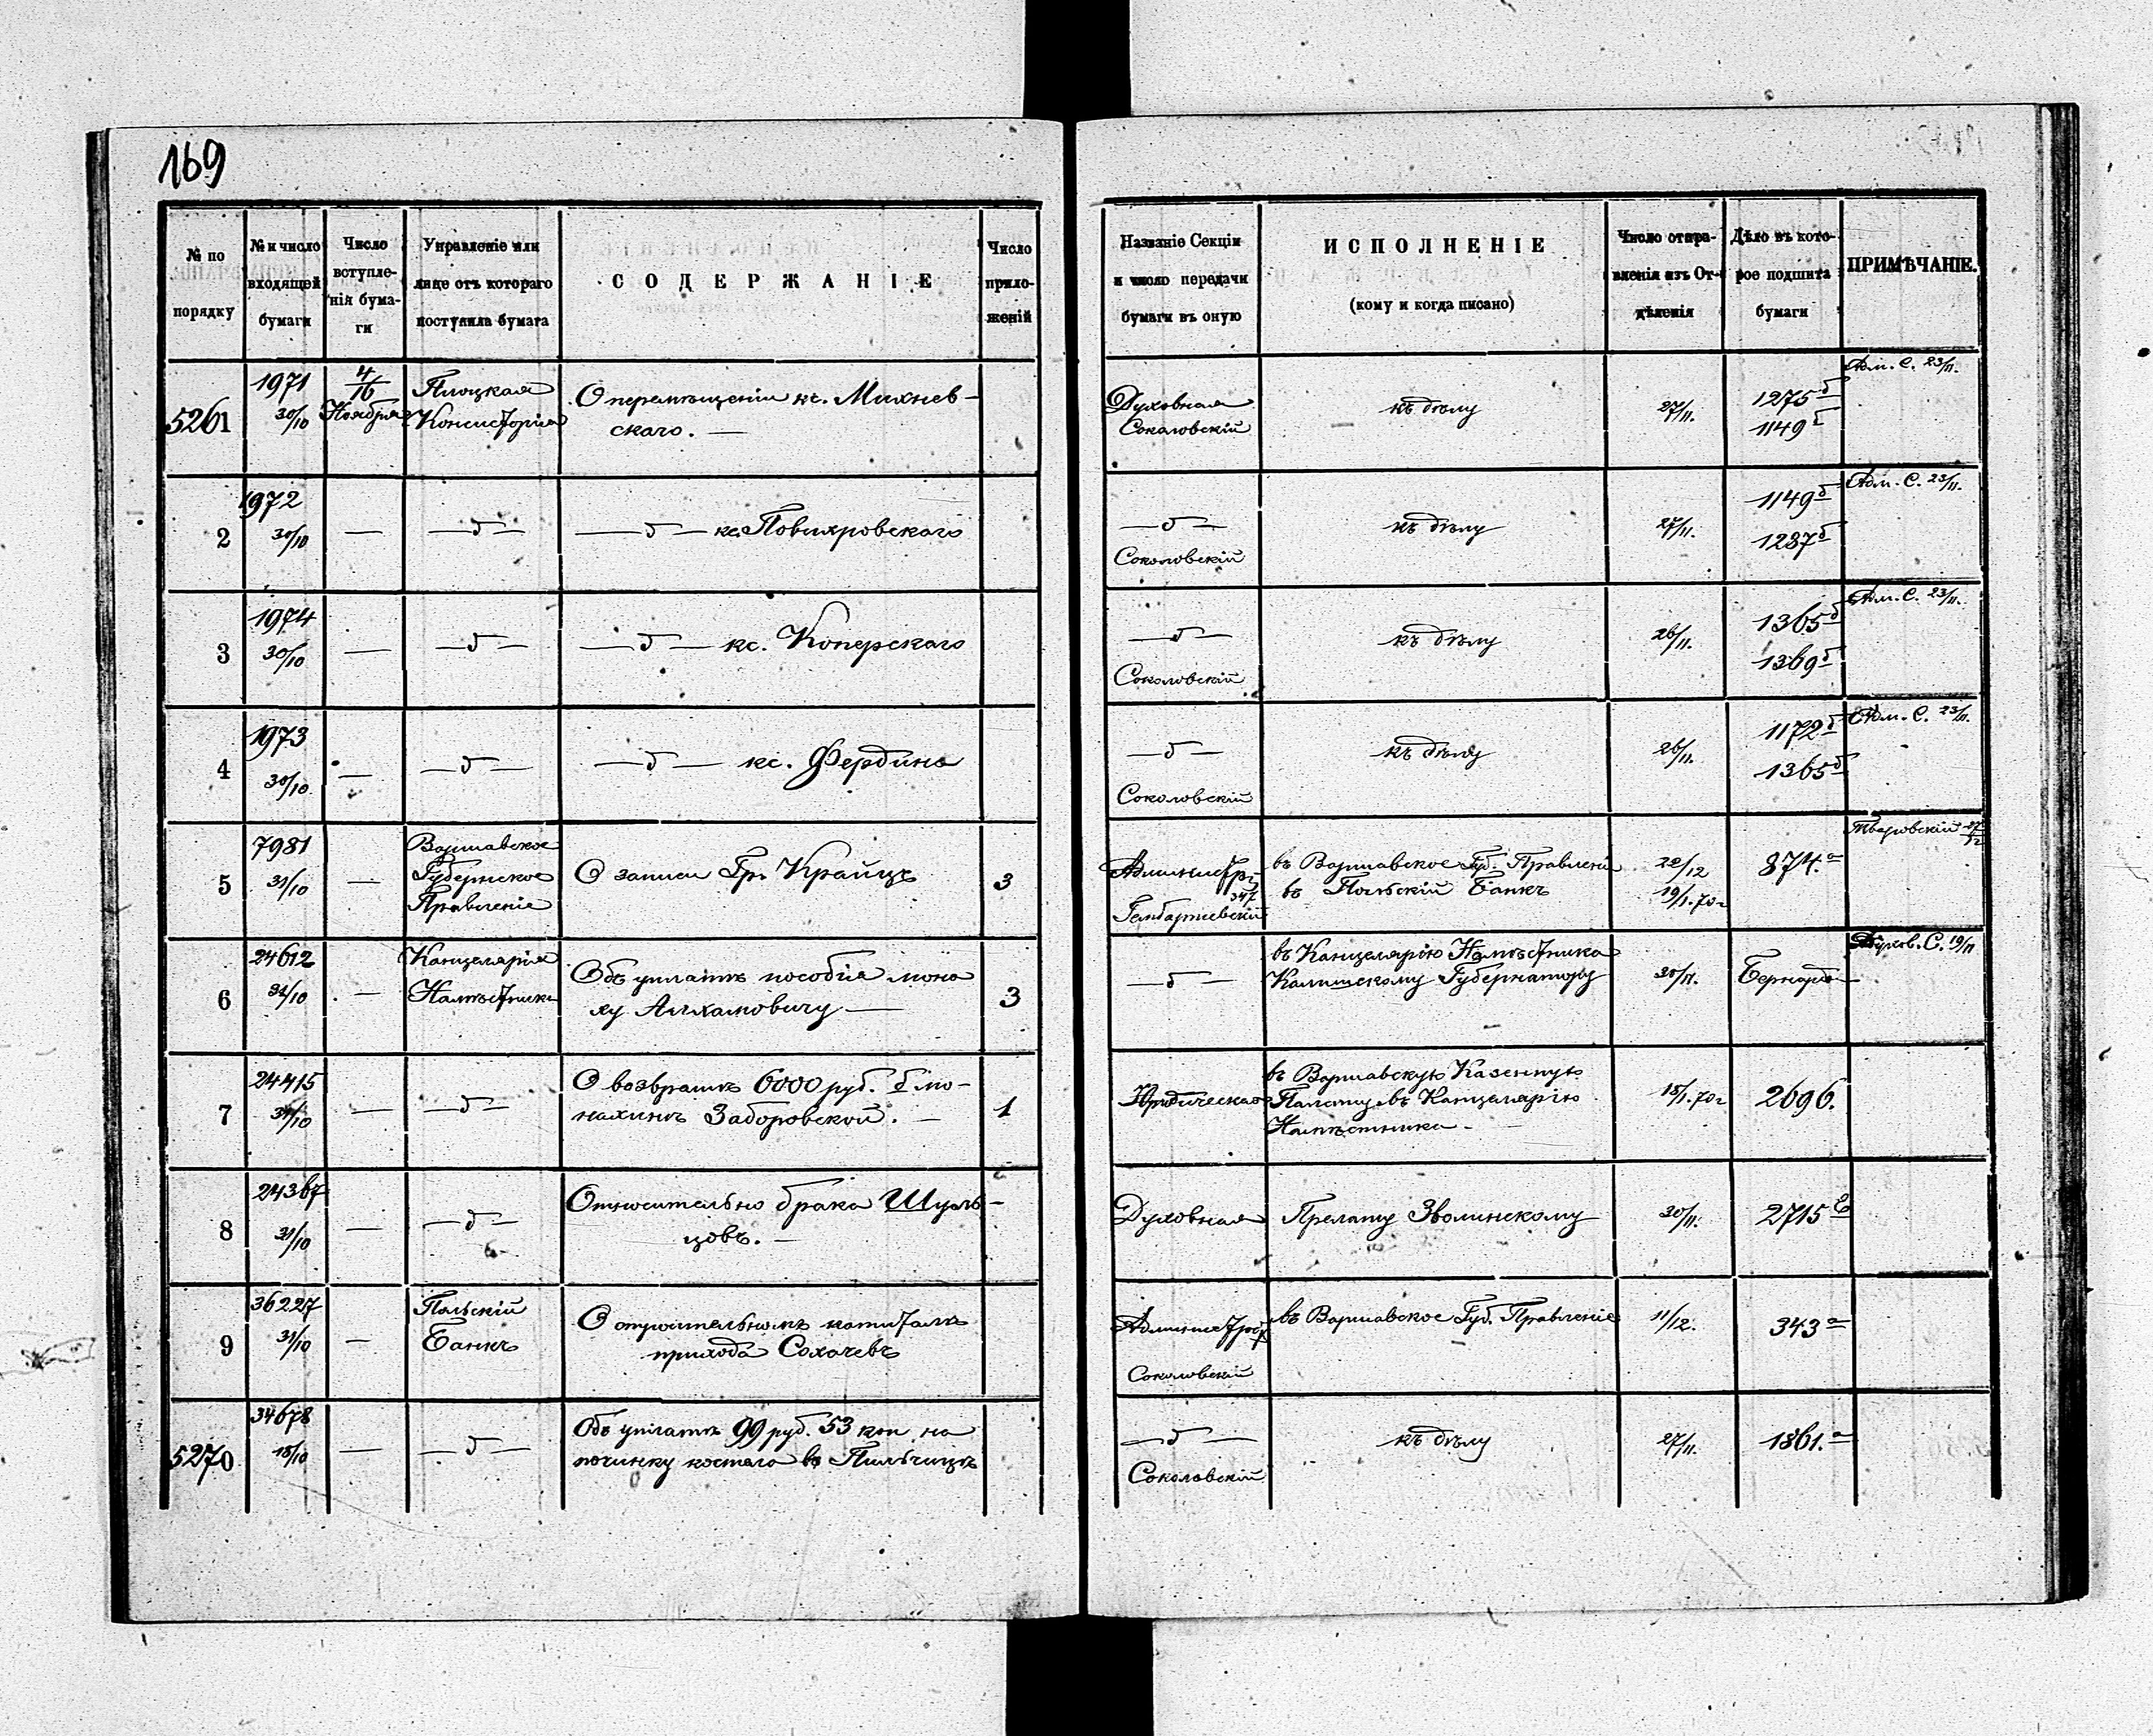 169
№ по порядку
№ и число входящей бумаги
Число вступле-нія бума-ги
Управленіе или лице отъ котораго поступила бумага
СОДЕРЖАНІЕ
Число прило-женій
Названіе Секціи и число передачи бумаги въ оную
ИСПОЛНЕНІЕ
(кому и когда писано)
Число отпра-вленія изъ От-дѣленія
Дѣло въ кото-рое подшита бумаги
ПРИМѢЧАНІЕ.
5261
1971
30/10
4/16
Ноября
Плоцкая
Консисторія
О перемѣщеніи кс. Михнев-
скаго. —
Духовная
Соколовскій
къ дѣлу
27/11.
1275б
1149б
Адм. С. 23/11.
2
1972
30/10
—
— б —
— б — кс.
— б —
Соколовскій
къ дѣлу
27/11.
1149б
1287б
Адм. С. 23/11.
3
1974
30/10
—
— б —
— б — кс. Коперскаго
— б —
Соколовскій
къ дѣлу
26/11.
1365б
1369б
Адм. С. 23/11.
4
1973
30/10
—
— б —
— б — кс. Фердина
— б —
Соколовскій
къ дѣлу
26/11.
1172б
1365б
Адм. С. 23/11.
5
7981
31/10
—
Варшавское
Губернское
Правленіе
О записи Гр. Крайцъ
3
Администр.
347
въ Варшавское Губ. Правленіе
въ Польскій Банкъ
22/12
19/1.70г
874.а
6
24612
31/10
—
Канцелярія
Намѣстника
Объ уплатѣ пособія мона
ху
3
— б —
въ Канцелярію Намѣстника
Калишскому Губернатору
20/11.
Бернард
Духов. С. 19/11
7
24415
31/10
—
— б —
О возвратѣ 6000 руб. б. мо-
нахинѣ Заборовской. —
1
Юридическая
въ Варшавскую Казенную
Палату въ Канцелярію
Намѣстника —
15/1.70г
2696.
8
24367
31/10
—
— б —
Относительно брака Шуль-
цовъ. —
Духовная
Прелату Зволинскому
20/11.
2715
9
36227
31/10
—
Польскій
Банкъ
О относительномъ капиталѣ
прихода Сохачевъ
Администр
Соколовскій
въ Варшавское Губ. Правленіе
11/12.
343а
5270
34678
18/10
—
— б —
Объ уплатѣ 99 руб. 53 коп. на
починку костела въ Пильчицѣ
— б —
Соколовскій
къ дѣлу
27/11.
1861.а